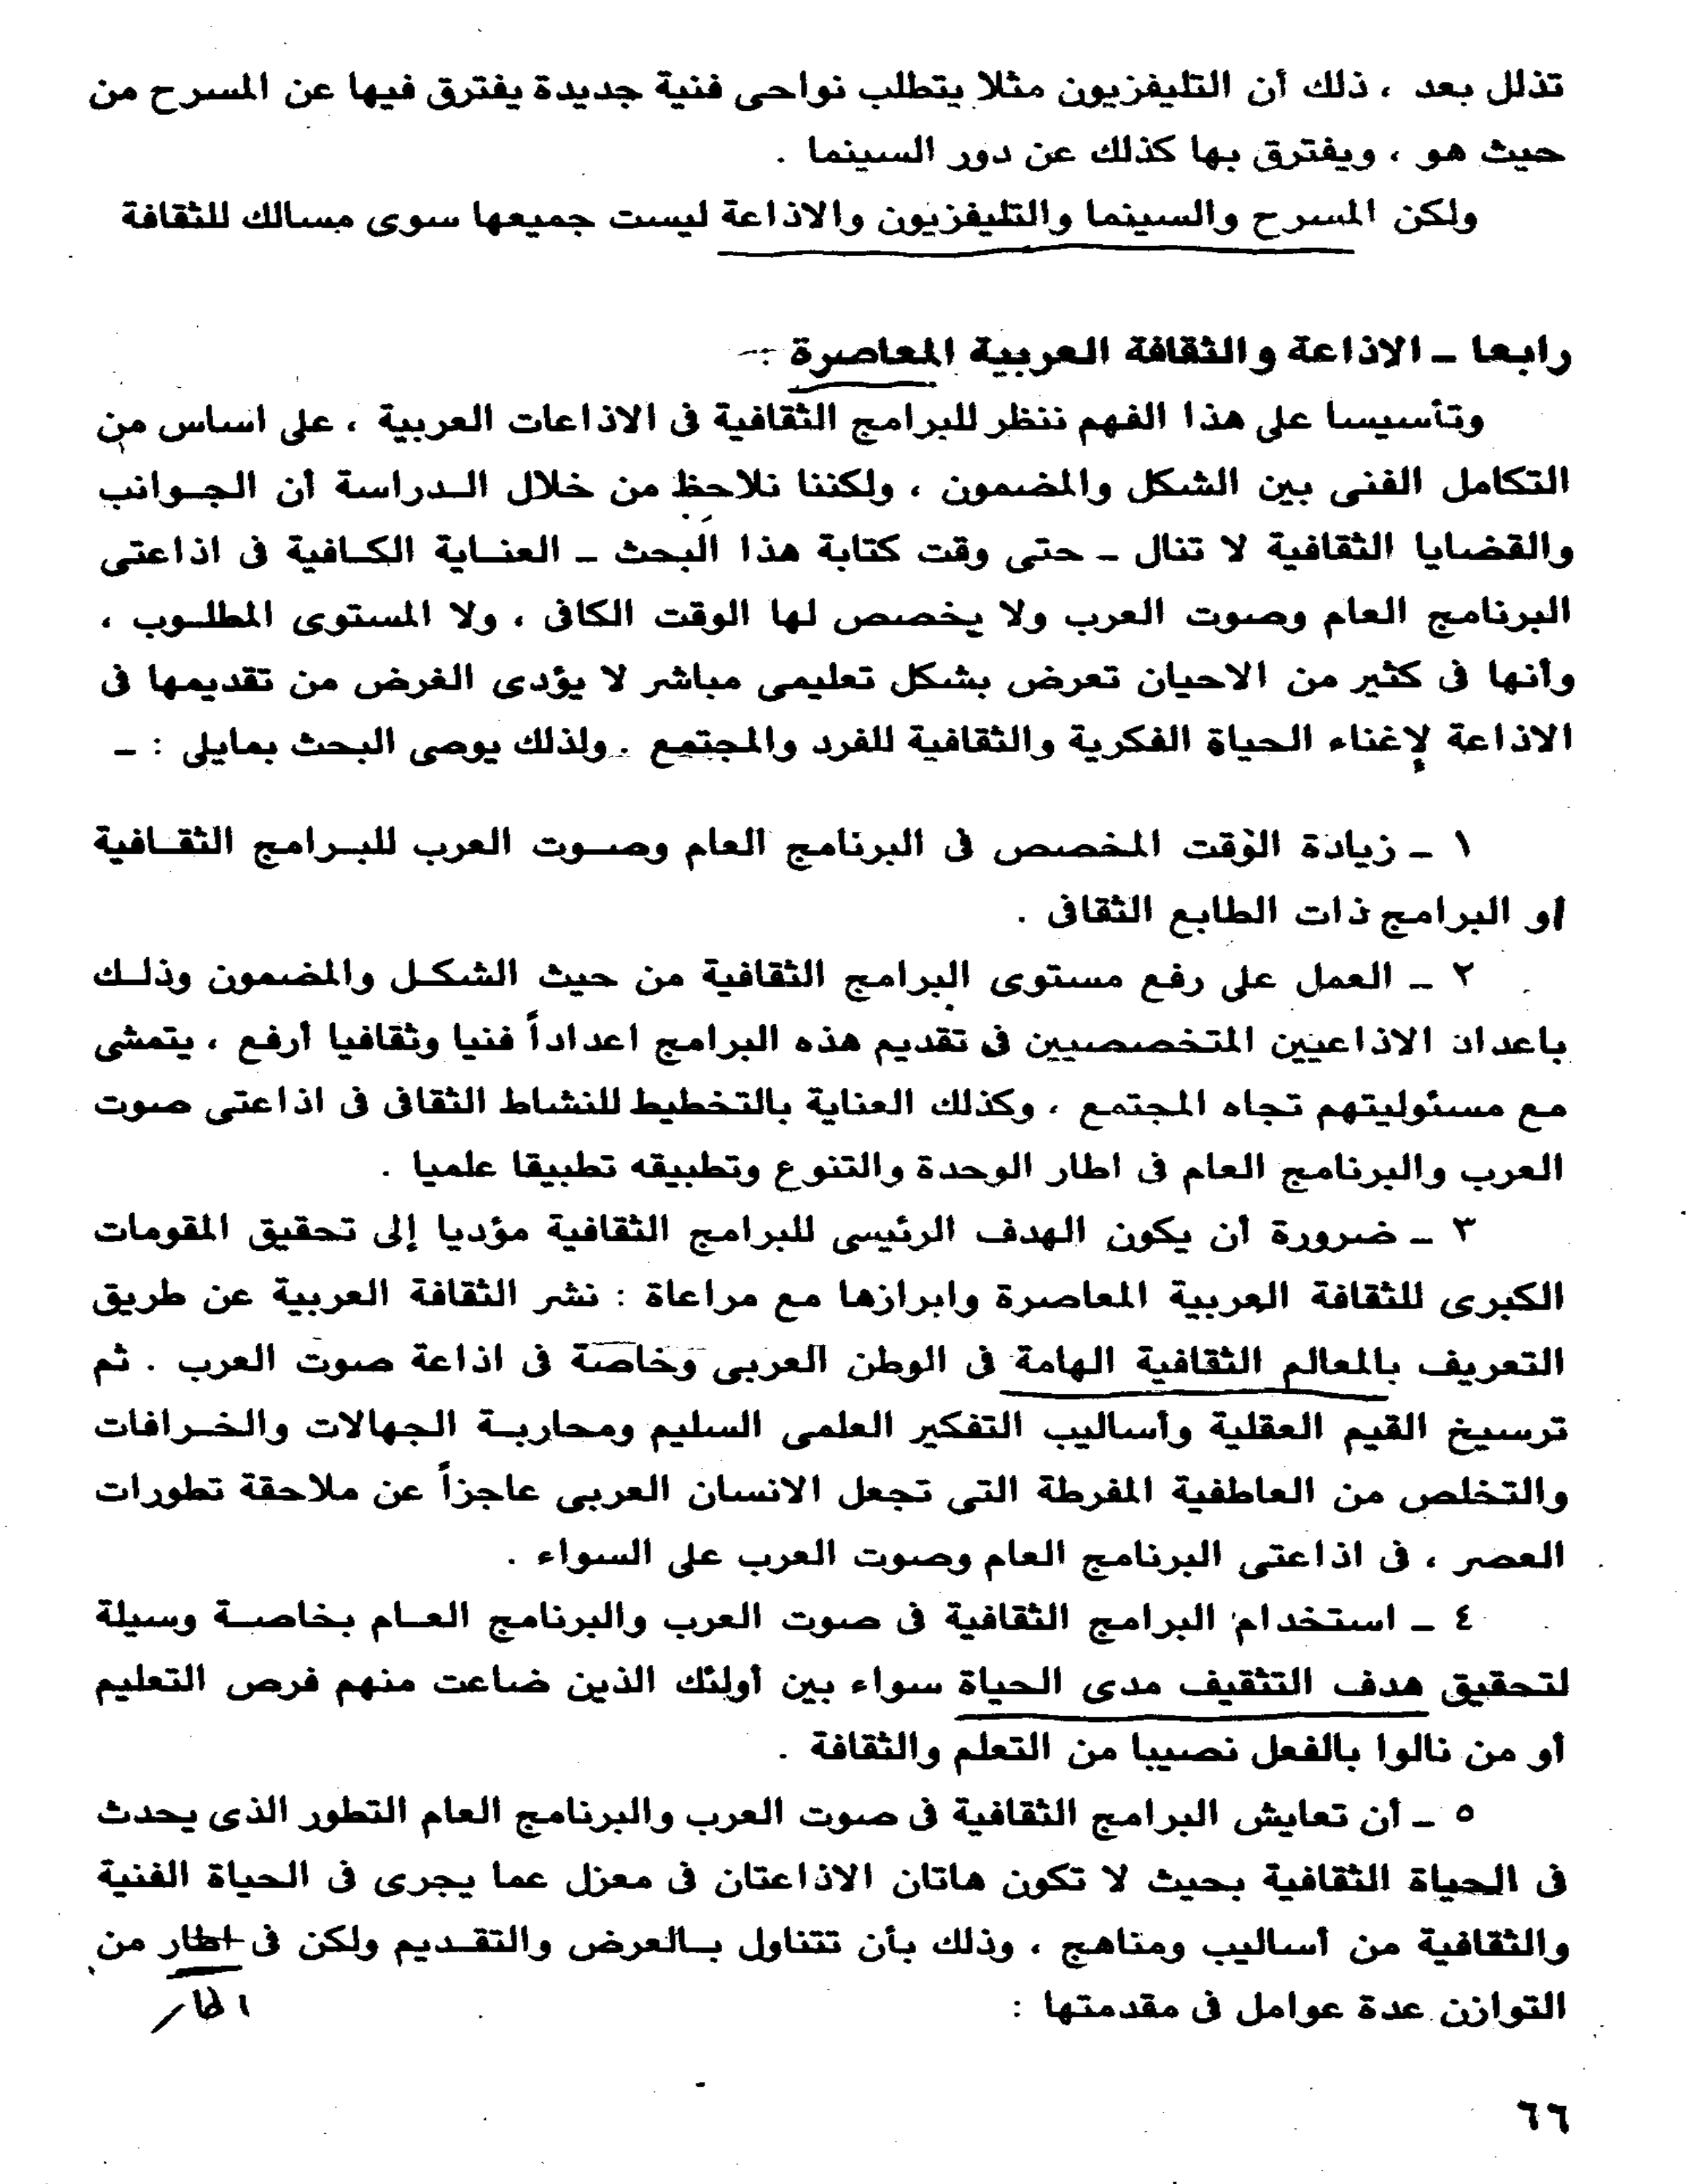 تذلل بعد ، ذلك أن التليفزيون مثلا يتطلب نواحى فنية جديدة يفترق فيها عن المسرح من
حيث هو ، ويفترق بها كذلك عن دور السينما .
ولكن المسرح والسينما والتليفزيون والاذاعة ليست جميعها سوى مسالك للثقافة
رابعا – الاذاعة والثقافة العربية المعاصرة :–
وتأسيسا على هذا الفهم ننظر للبرامج الثقافية فى الاذاعات العربية ، على اساس من
التكامل الفنى بين الشكل والمضمون ، ولكننا نلاحظ من خلال الدراسة أن الجوانب
والقضايا الثقافية لا تنال – حتى وقت كتابة هذا البحث – العناية الكافية فى اذاعتى
البرنامج العام وصوت العرب ولا يخصص لها الوقت الكافى ، ولا المستوى المطلوب ،
وأنها فى كثير من الاحيان تعرض بشكل تعليمى مباشر لا يؤدى الغرض من تقديمها فى
الاذاعة لإغناء الحياة الفكرية والثقافية للفرد والمجتمع . ولذلك يوصى البحث بمايلى : –
١ – زيادة الوقت المخصص فى البرنامج العام وصوت العرب للبرامج الثقافية
او البرامج ذات الطابع الثقافى .
٢ – العمل على رفع مستوى البرامج الثقافية من حيث الشكل والمضمون وذلك
باعدان الاذاعيين المتخصصيين فى تقديم هذه البرامج اعداداً فنيا وثقافيا أرفع ، يتمشى
مع مسئوليتهم تجاه المجتمع ، وكذلك العناية بالتخطيط للنشاط الثقافى فى اذاعتى صوت
العرب والبرنامج العام فى اطار الوحدة والتنوع وتطبيقه تطبيقا علميا .
٣ – ضرورة أن يكون الهدف الرئيسى للبرامج الثقافية مؤديا إلى تحقيق المقومات
الكبرى للثقافة العربية المعاصرة وابرازها مع مراعاة : نشر الثقافة العربية عن طريق
التعريف بالمعالم الثقافية الهامة فى الوطن العربى وخاصة فى اذاعة صوت العرب . ثم
ترسيخ القيم العقلية وأساليب التفكير العلمى السليم ومحاربة الجهالات والخرافات
والتخلص من العاطفية المفرطة التى تجعل الانسان العربى عاجزاً عن ملاحقة تطورات
العصر ، فى اذاعتى البرنامج العام وصوت العرب على السواء .
٤ – استخدام البرامج الثقافية فى صوت العرب والبرنامج العام بخاصة وسيلة
لتحقيق هدف التثقيف مدى الحياة سواء بين أولئك الذين ضاعت منهم فرص التعليم
أو من نالوا بالفعل نصيبا من التعلم والثقافة .
٥ – أن تعايش البرامج الثقافية فى صوت العرب والبرنامج العام التطور الذى يحدث
فى الحياة الثقافية بحيث لا تكون هاتان الاذاعتان فى معزل عما يجرى فى الحياة الفنية
والثقافية من أساليب ومناهج ، وذلك بأن تتناول بالعرض والتقديم ولكن فى اطار من
التوازن عدة عوامل فى مقدمتها :
اطار
٦٦